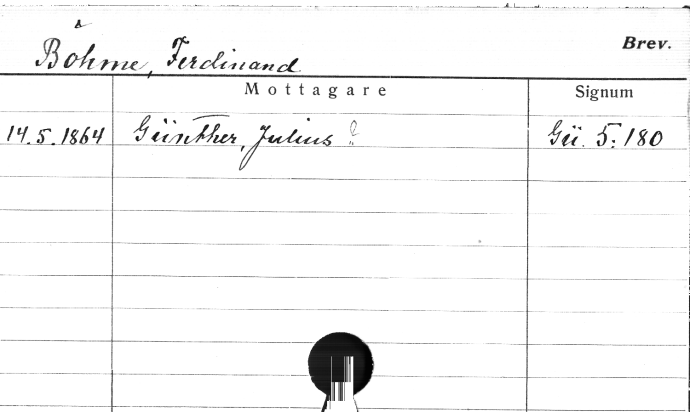 Böhme, Ferdinand
Brev.
Mottagare
Signum
14.5.1864 Günther, Julius ? Gü. 5:180